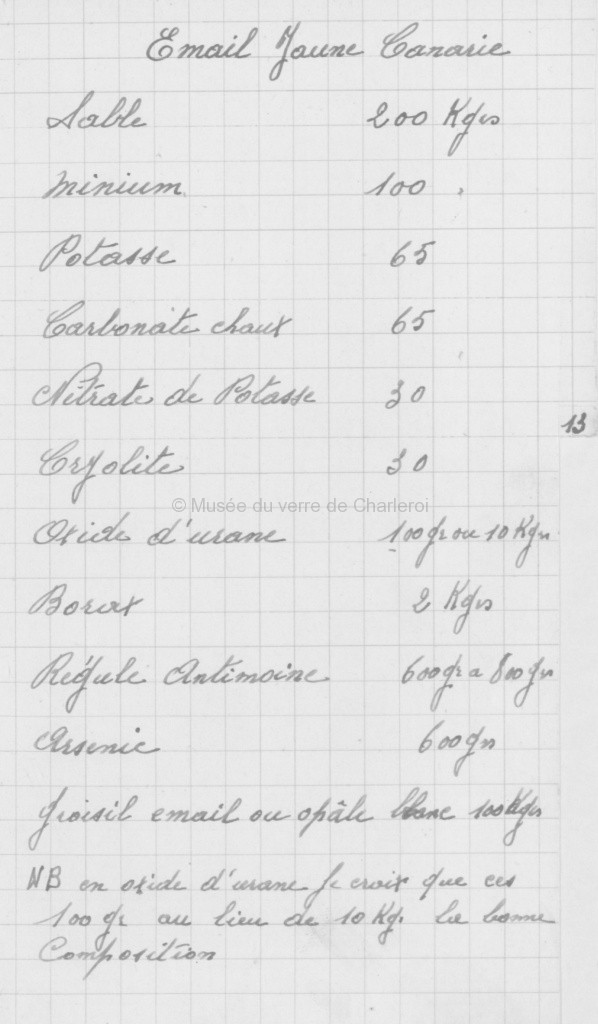 Email Jaune Canarie
Sable 200 Kgrs
Minium 100
Potasse 65
Carbonate chaux 65
Nitrate de Potasse 30
13
Cryolite 30
© Musée du verre de Charleroi
Oxide d'urane 100gr ou 10 Kgrs
Borax 2 Kgrs
Régule Antimoine 600gr a 800grs
Arsenic 600grs
Groisil email ou opâle blanc 100Kgrs
NB en oxide d'urane Je croix que ces
100 gr au lieu de 10 Kg. la bonne
Composition